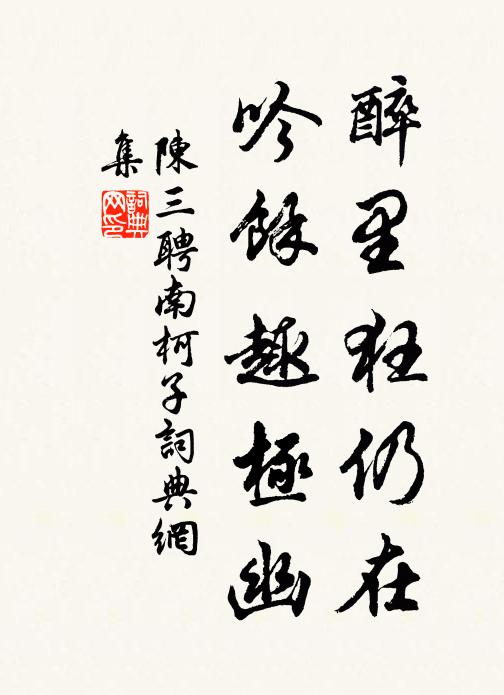 醉里狂仍在
吟餘趣極幽
陳三聘南柯子詞典網
集
詞典
网印